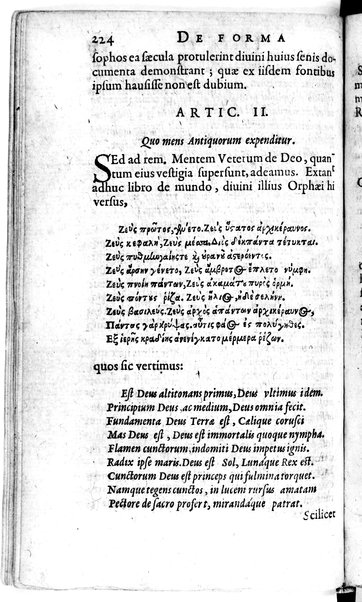 224 DE FORMA
sophos ea sæcula protulerint diuini huius senis do-
cumenta demonstrant; quæ ex iisdem fontibus
ipsum hausisse non est dubium.
ARTIC. II.
Quo mens Antiquorum expenditur.
SEd ad rem. Mentem Veterum de Deo, quan-
tum eius vestigia supersunt, adeamus. Extant
adhuc libro de mundo, diuini illius Orphæi hi
versus,
Ζεὺς πρῶτος γένετο. Ζεὺς ὕστατος ἀρχικέραυνος.
Ζεὺς κεφαλὴ, Ζεὺς μέσσα, Διὸς δ' ἐκ πάντα τέτυκται.
Ζεὺς πυθμὴν γαίης τε καὶ οὐρανοῦ ἀστερόεντος.
Ζεὺς ἄρσην γένετο, Ζεὺς ἄμβροτος ἔπλετο νύμφη.
Ζεὺς πνοιὴ πάντων, Ζεὺς ἀκαμάτου πυρὸς ὁρμή.
Ζεὺς πόντου ῥίζα. Ζεὺς ἥλιος, ἠδὲ σελήνη.
Ζεὺς βασιλεύς. Ζεὺς ἀρχὸς ἁπάντων ἀρχικέραυνος.
Πάντας γὰρ κρύψας, αὖτις φάος ἐς πολυγηθές.
Ἐξ ἱερῆς κραδίης ἀνενέγκατο μέρμερα ῥέζων.
quos sic vertimus:
Est Deus altitonans primus, Deus vltimus idem.
Principium Deus ac medium, Deus omnia fecit.
Fundamenta Deus Terra est, Cælique corusci
Mas Deus est, Deus est immortalis quoque nympha.
Flamen cunctorum, indomiti Deus impetus ignis.
Radix ipse maris. Deus est Sol, Lunaque Rex est.
Cunctorum Deus est princeps qui fulmina torquet.
Namque tegens cunctos, in lucem rursus amatam
Pectore de sacro profert, mirandaque patrat.
Scilicet